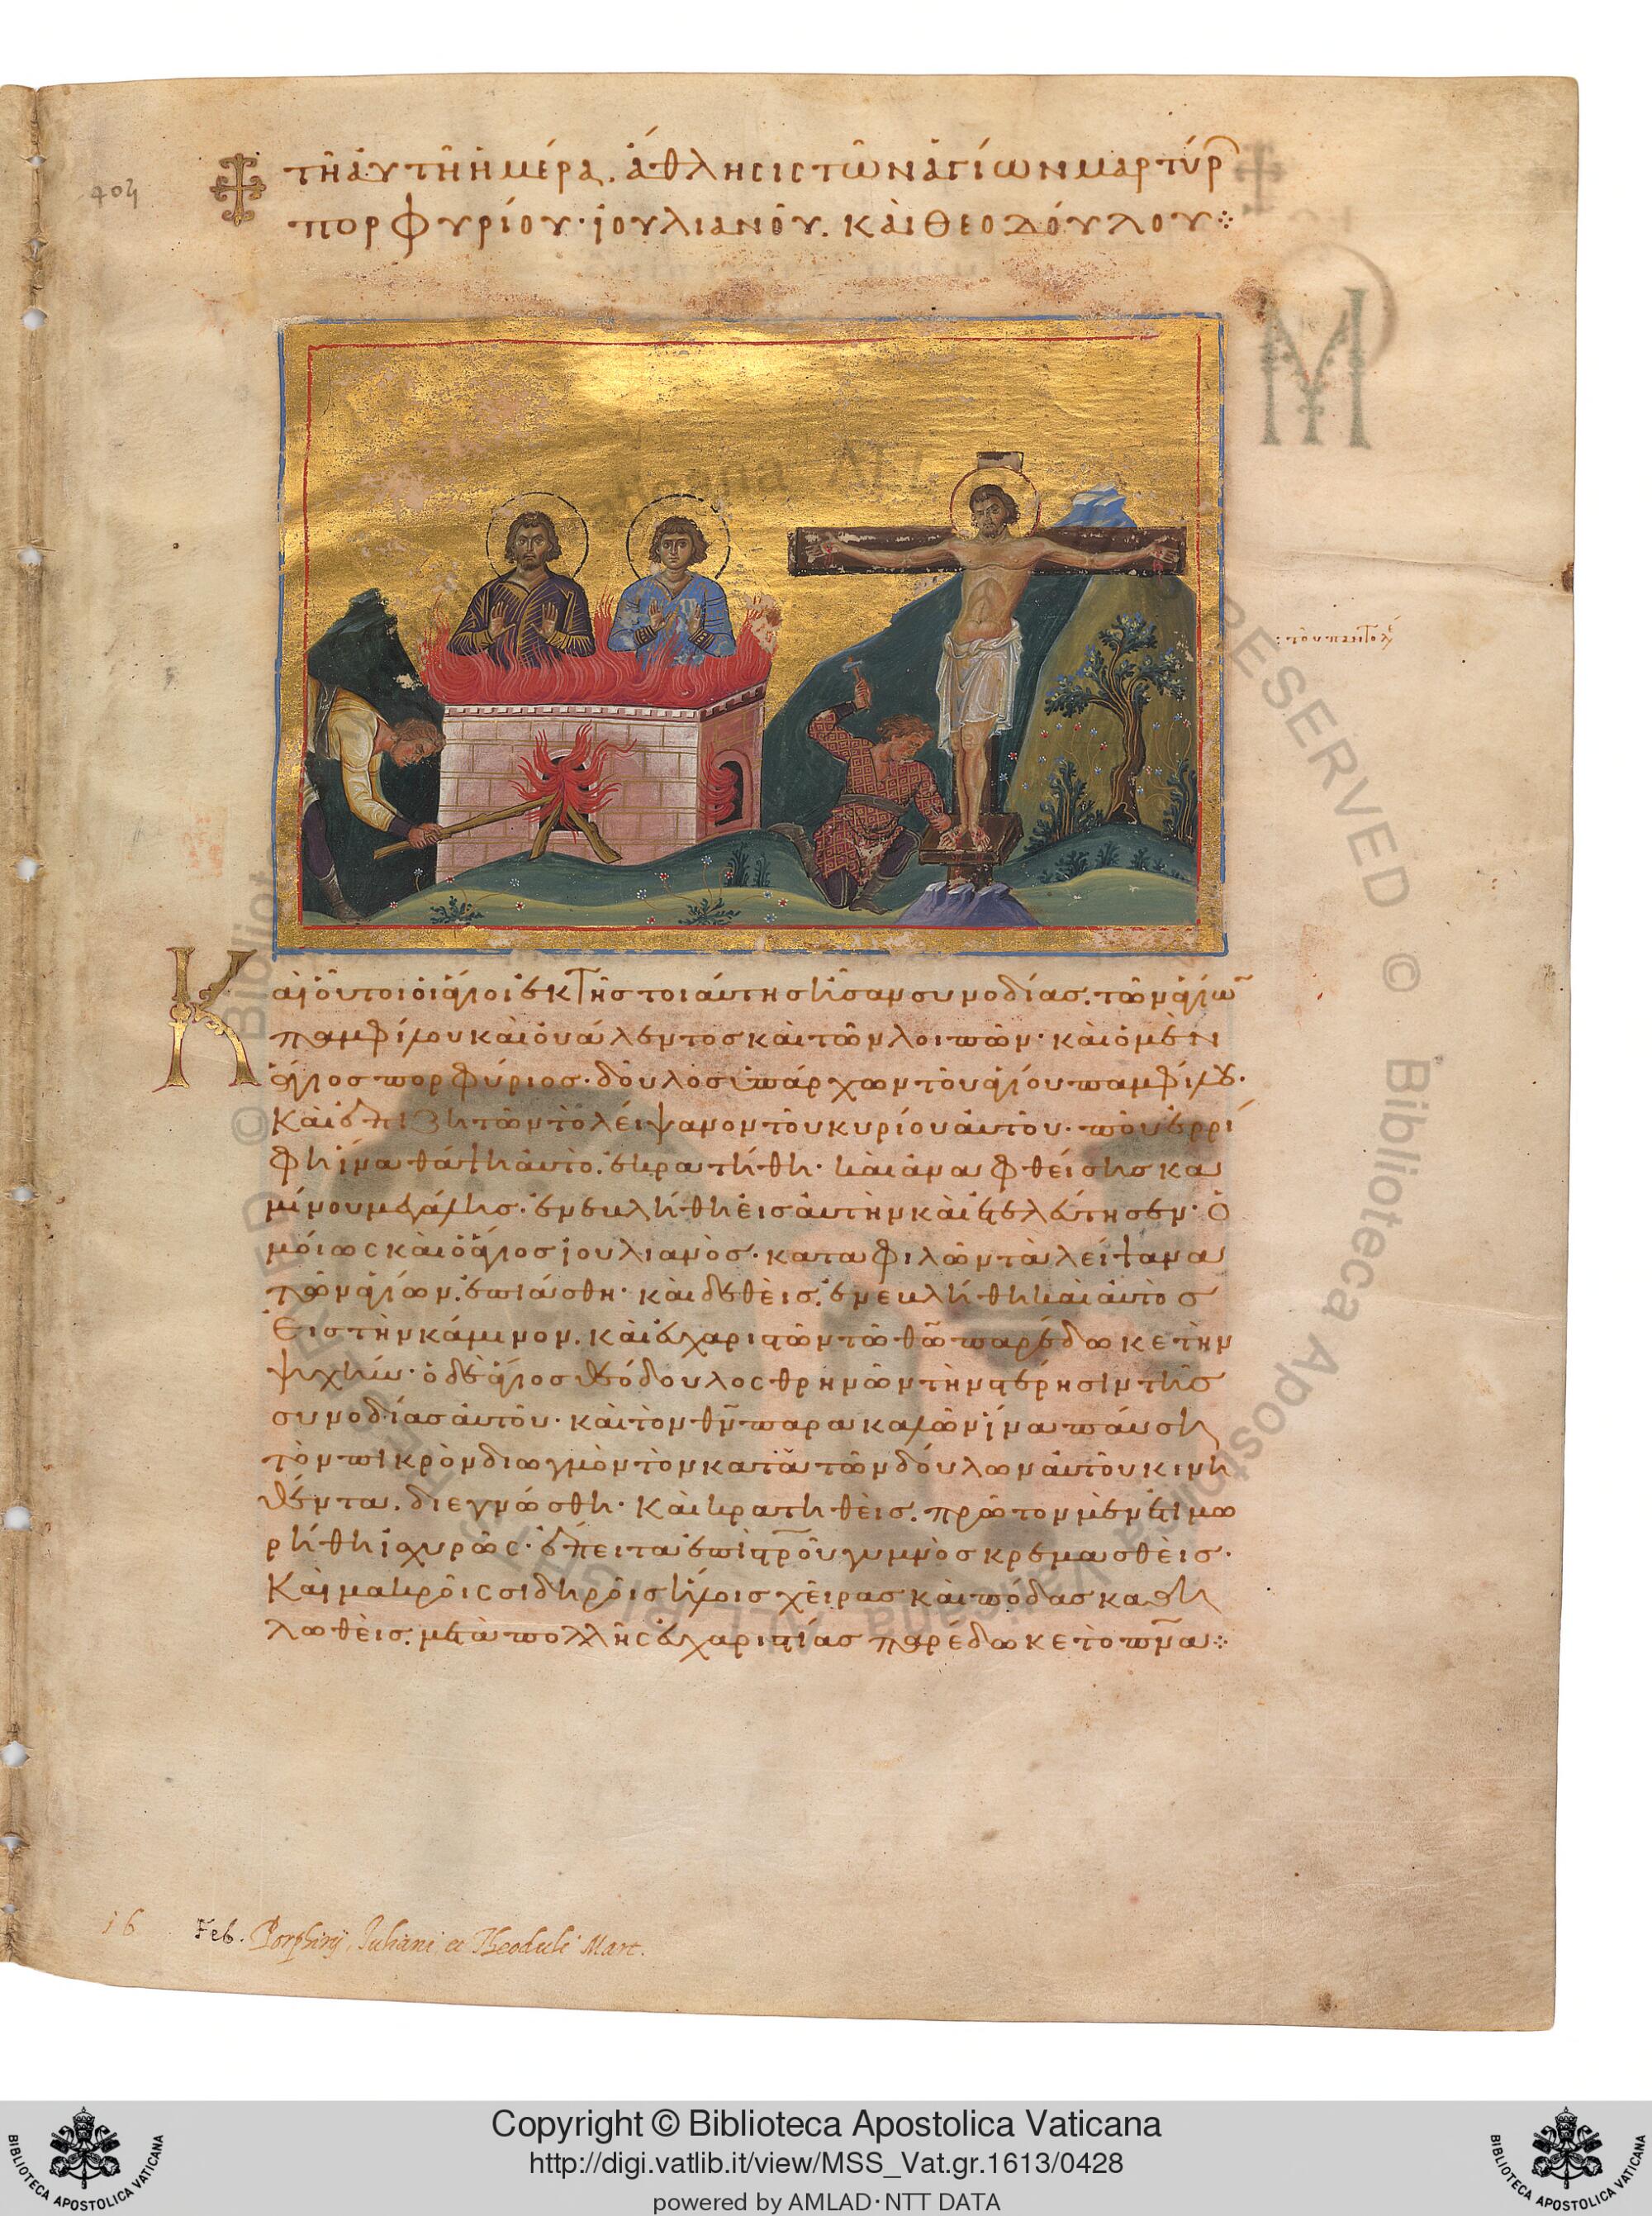 404
τῆ αὐτῆ ἡμέρα. ἄθλησις τῶν ἁγίων μαρτύρ
πορφυρίου· ἰουλιανοῦ. καὶ θεοδούλου⁘
: τοῦ παντολέ
Καὶ οὗτοι οἱ ἅγιοι ἐκ τῆς τοιαύτης ἦσαν συνοδίας. τῶν ἁγίω
παμφίλου καὶ οὐάλεντος καὶ τῶν λοιπῶν· καὶ ὁ μὲν
ἅγιος πορφύριος· δοῦλος ὑπάρχων τοῦ ἁγίου παμφίλου·
καὶ ἐπιζητῶν τὸ λείψανον τοῦ κυρίου αὐτοῦ· ποῦ ἐρρί
φη ἵνα θάψη αὐτὸ. ἐκρατήθη· καὶ ἀναφθείσης κα
μίνου μεγάλης· ἐνεβλήθη εἰς αὐτὴν καὶ ἐτελεύτησεν· ὁ
μοίως καὶ ὁ ἅγιος ἰουλιανὸς· καταφιλῶν τὰ λείψανα
τῶν ἁγίων. ἐπιάσθη· καὶ δεθεὶς. ἐνεβλήθη καὶ αὐτὸς
εἰς τὴν κάμινον. καὶ εὐχαριστῶν τῶ θῶ παρέδωκε τὴν
ψυχήν· ὁ δὲ ἅγιος θεόδουλος θρηνῶν τὴν στέρησιν τῆς
συνοδίας αὐτοῦ· καὶ τὸν θν παρακαλῶν ἵνα παύση
τὸν πικρὸν διωγμὸν τὸν κατὰ τῶν δούλων αὐτοῦ κινη
θέντα. διεγνώσθη· καὶ κρατηθεὶς. πρῶτον μὲν ἐτιμω
ρήθη ἰσχυρῶς· ἔπειτα ἐπὶ στροῦ γυμνὸς κρεμασθεὶς·
καὶ μακροῖς σιδηροῖς ἥλοις χεῖρας καὶ πόδας καθη
λωθεὶς. μετὰ πολλῆς εὐχαριστίας παρέδωκε τὸ πνα⁘
16 Feb. Porphirij, Juliani et Theoduli Mart.
© Biblioteca Apostolica Vaticana ALL RIGHTS RESERVED
Copyright © Biblioteca Apostolica Vaticana
http://digi.vatlib.it/view/MSS_Vat.gr.1613/0428
powered by AMLAD·NTT DATA
BIBLIOTECA APOSTOLICA VATICANA
BIBLIOTECA APOSTOLICA VATICANA